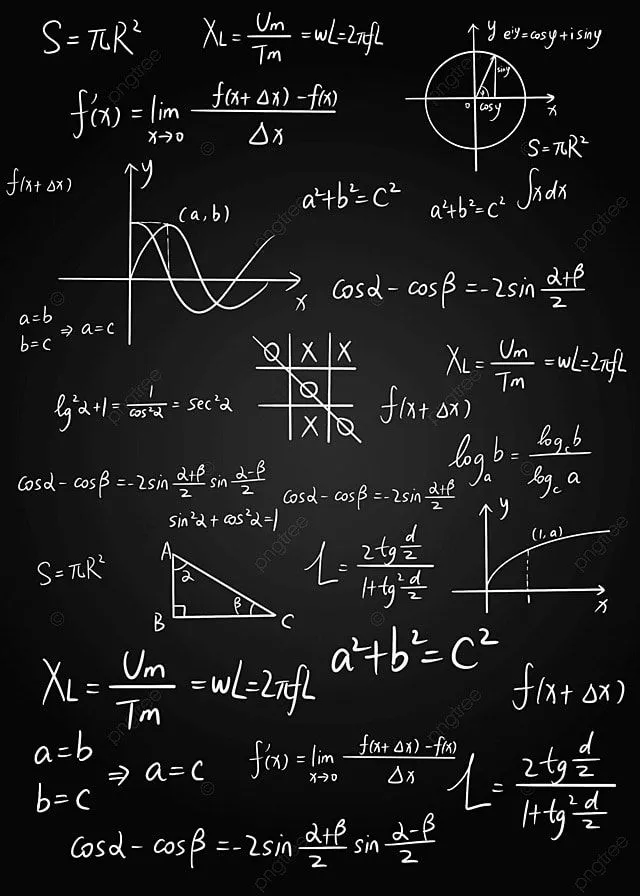 S = πR²
X_L = Um/Tm = wL=2πfL
y
e^iy=cosy+isiny
siny
o
cosy
x
f'(x) = lim x→0 f(x+Δx)-f(x)/Δx
S=πR²
f(x+Δx)
y
(a,b)
x
a²+b²=C²
a²+b²=C²
∫xdx
cosα-cosβ=-2sin α+β/2
a=b
b=c
⇒ a=c
O X X
O
X O
X_L = Um/Tm = wL=2πfL
lg²2+1= 1/cos²2 = sec²2
f(x+Δx)
log_a b = log_c b/log_c a
cosα-cosβ=-2sin α+β/2 sin α-β/2
cosα-cosβ=-2sin α+β/2
sin²2+cos²2=1
y
(1,a)
1
x
S=πR²
A
2
B
β
C
L = 2tg d/2 / 1+tg² d/2
a²+b²=C²
X_L = Um/Tm = wL=2πfL
f(x+Δx)
a=b
b=c
⇒ a=c
f'(x) = lim x→0 f(x+Δx)-f(x)/Δx
L = 2tg d/2 / 1+tg² d/2
cosα-cosβ=-2sin α+β/2 sin α-β/2
pngtree